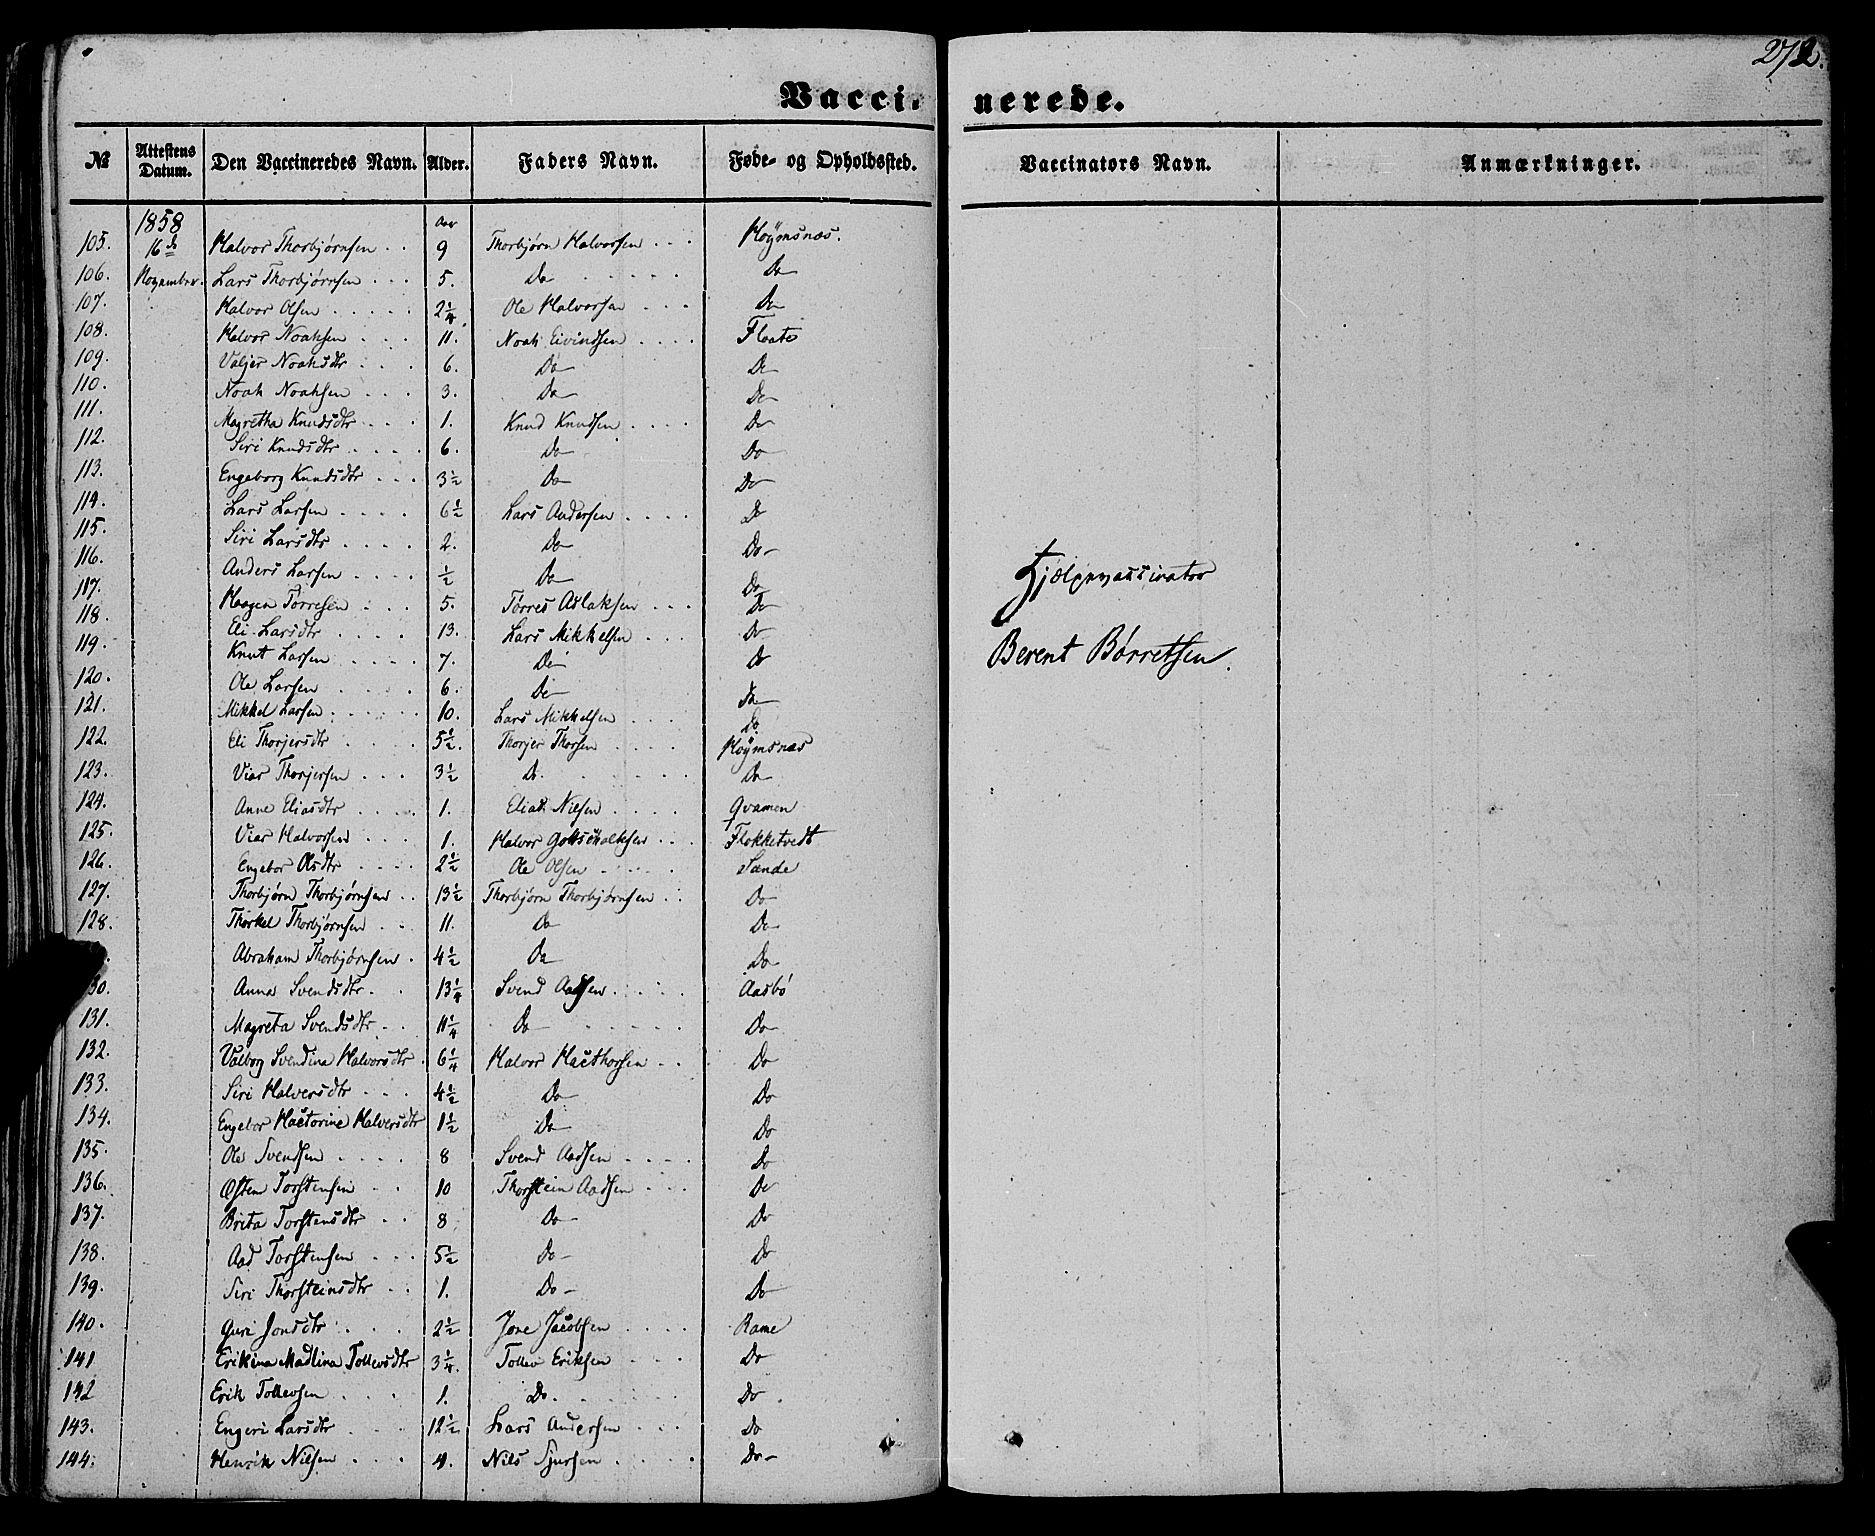 272.
Vaccinerede.
№ Attestens Datum. Den Vaccineredes Navn. Alder. Faders Navn. Føde- og Opholdssted. Vaccinators Navn. Anmærkninger.
1858 Aar
105. 16de Halvor Thorbjørnsen . . 9 Thorbjørn Halvorsen . . . Høÿmsnæs.
106. November. Lars Thorbjørnsen . . . 5. Do . . . . . Do
107. Halvor Olsen . . . . . 2 1/4 Ole Halvorsen . . . Do
108. Halvor Noahsen . . . 11. Noah Eivindsen . . . . Flaate
109. Valjer Noahsdtr . . . 6. Do Do
110. Noah Noahsen . . . 3. Do Do
111. Magretha Knudsdtr . . . 1. Knud Knudsen . . . . Do
112. Siri Knudsdtr . . . . 6. Do Do
113. Engeborg Knudsdtr . . . 3 1/2 Do Do
114. Lars Larsen . . . . 6 1/2 Lars Andersen . . . . Do
115. Siri Larsdtr . . . . 2. Do Do
116. Anders Larsen . . . . 1/2 Do Do
117. Haagen Tørresen . . . 5. Tørres Aslaksen . . . Do
118. Eli Larsdtr . . . . 13. Lars Mikkelsen . . . Do
119. Knut Larsen . . . . 7. Do Do
120. Ole Larsen . . . . 6. Do Do
121. Mikkel Larsen . . . . . 10. Lars Mikkelsen . . . Do
122. Eli Thorjersdtr . . . . 5 1/2. Thorjer Thorsen . . . . Høÿmsnæs
123. Viar Thorjersen . . . 3 1/2 Do. . . . . . Do
124. Anne Eliasdtr . . . . 1. Elias Nielsen . . . . Qvamen
125. Viar Halvorsen . . . . 1. Halvor Gottschalksen . . . Flokketvedt
126. Engebor Olsdtr . . . . 2 1/2 Ole Olsen . . . . . Sande
127. Thorbjørn Thorbjørnsen . . 13 1/2 Thorbjørn Thorbjørnsen . . Do
128. Thorkel Thorbjørnsen . . 11. Do Do
Abraham Thorbjørnsen . 4 1/2 Do Do
30. Anna Svendsdtr. . . 13 1/4 Svend Aadsen . . . . . Aasbö
131. Magreta Svendsdtr . . 11 1/4 Do . . . . . . Do
132. Valborg Svendina Halvorsdtr . 6 1/4 Halvor Hacthorsen . . Do
133. Siri Halvorsdtr . . . 4 1/2 Do Do
134. Engebor Hactorine Halvorsdtr 1 1/2 Do Do
135. Ole Svendsen . . . . 8 Svend Aadsen . . . . Do
136. Østen Torstensen . . 10 Thorstein Aadsen . . . Do
137. Brita Torstensdtr . . 8 Do Do
138. Aad Torstensen . . . 5 1/2 Do Do
139. Siri Thorsteinsdtr . . 1. Do Do
140. Guri Jonsdtr . . . . 2 1/2 Jone Jacobsen . . . . Rame
141 Erikina Madlina Tollevsdtr 3 1/4. Tollev Eriksen . . . Do
142 Erik Tollevsen . . . 1. Do. . . . . Do
143. Engeri Larsdtr . . . 12 1/2 Lars Andersen . . . Do
144. Henrik Nielsen . . . 4. Nils Sjursen . . . . . Do
Hjælpevassinator
Berent Børretsen.